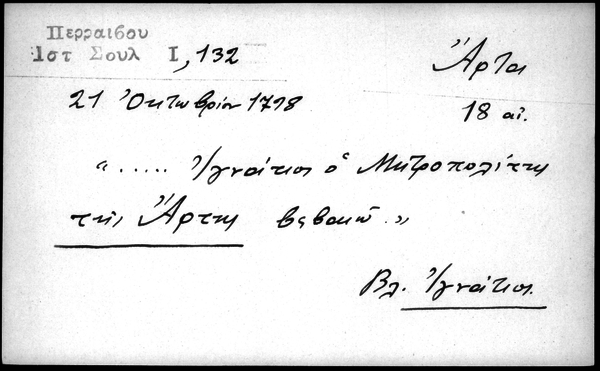 Περραιβου
Ιστ Σουλ Ι, 132
Ἄρτα
21 Ὀκτωβρίου 1798
18 αἰ.
"..... Ἰγνάτιος ὁ Μητροπολίτης
τῆς Ἄρτης βεβαιῶ."
Βλ. Ἰγνάτιος.